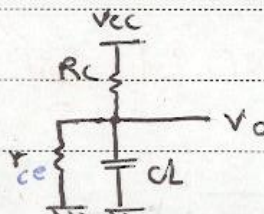 Vcc
Rc
Vo
rce
CL